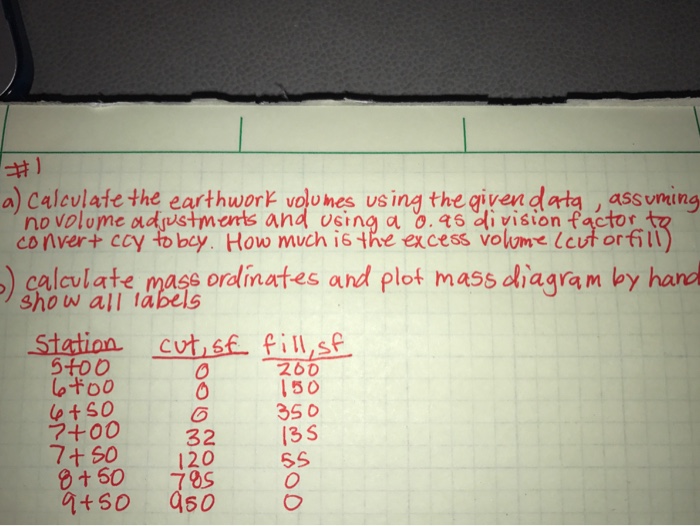 #1
a) Calculate the earthwork volumes using the given data, assuming
no volume adjustments and using a 0.95 division factor to
convert ccy to bcy. How much is the excess volume (cut or fill)
b) calculate mass ordinates and plot mass diagram by hand
show all labels
Station cut, sf fill, sf
5+00 0 200
6+00 0 150
6+50 0 350
7+00 32 135
7+50 120 55
8+50 785 0
9+50 950 0